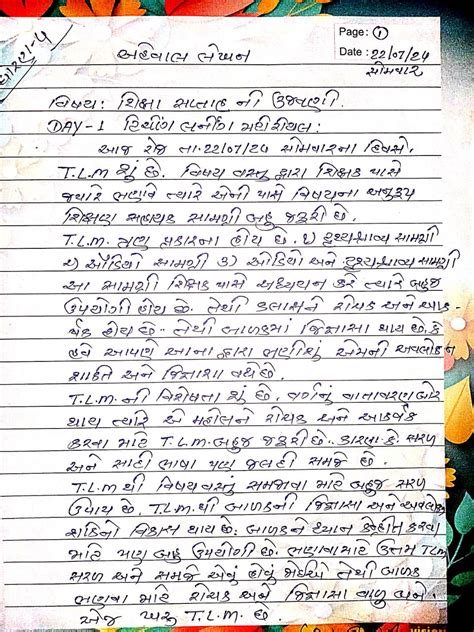 ધોરણ-૫
Page: ①
Date: 22/07/24
સોમવાર
અહેવાલ લેખન
વિષય: શિક્ષા સપ્તાહ ની ઉજવણી.
DAY-1 ટિચીંગ લર્નીંગ મટીરીયલ:
આજ રોજ તા.22/07/24 સોમવારના દિવસે.
T.L.M શું છે. વિષય વસ્તુ દ્વારા શિક્ષક પાસે
જ્યારે ભણાવે ત્યારે એની પાસે વિષયના અનુરૂપ
શિક્ષણ સહાયક સામગ્રી બહુ જરૂરી છે.
T.L.M. ત્રણ પ્રકારના હોય છે. ૧) દ્રશ્યશ્રાવ્ય સામગ્રી
૨) ઓડિયો સામગ્રી ૩) ઓડિયો અને દ્રશ્યશ્રાવ્ય સામગ્રી
આ સામગ્રી શિક્ષક પાસે અધ્યયન કરે ત્યારે બહુજ
ઉપયોગી હોય છે. તેથી ક્લાસને રોચક અને આક-
ર્ષક હોય છે. તેથી બાળકમાં જિજ્ઞાસા થાય છે. કે
હવે આપણે આના દ્વારા ભણીશું એમની અવલોકન
શક્તિ અને જિજ્ઞાસા વધે છે.
T.L.M. ની વિશેષતા શું છે. વર્ગનું વાતાવરણ
થાય ત્યારે એ મહોલને રોચક અને આકર્ષક
કરવા માટે T.L.M. બહુજ જરૂરી છે. કારણ કે. સરળ
અને સાદી ભાષા પણ જલદી સમજે છે.
T.L.M થી વિષયવસ્તુ સમજાવા માટે બહુજ સરળ
ઉપાય છે. T.L.M. થી બાળકની જિજ્ઞાસા અને અવલોકન
શક્તિનો વિકાસ થાય છે. બાળકને ધ્યાન કેન્દ્રીત કરવા
માટે પણ બહુ ઉપયોગી છે. ભણાવા માટે ઉત્તમ TLM
સરળ અને સમજે એવું હોવું જોઈએ તેથી બાળક
ભણવા માટે રોચક અને જિજ્ઞાસા વાળુ બને
એજ ખરૂ T.L.M. છે.